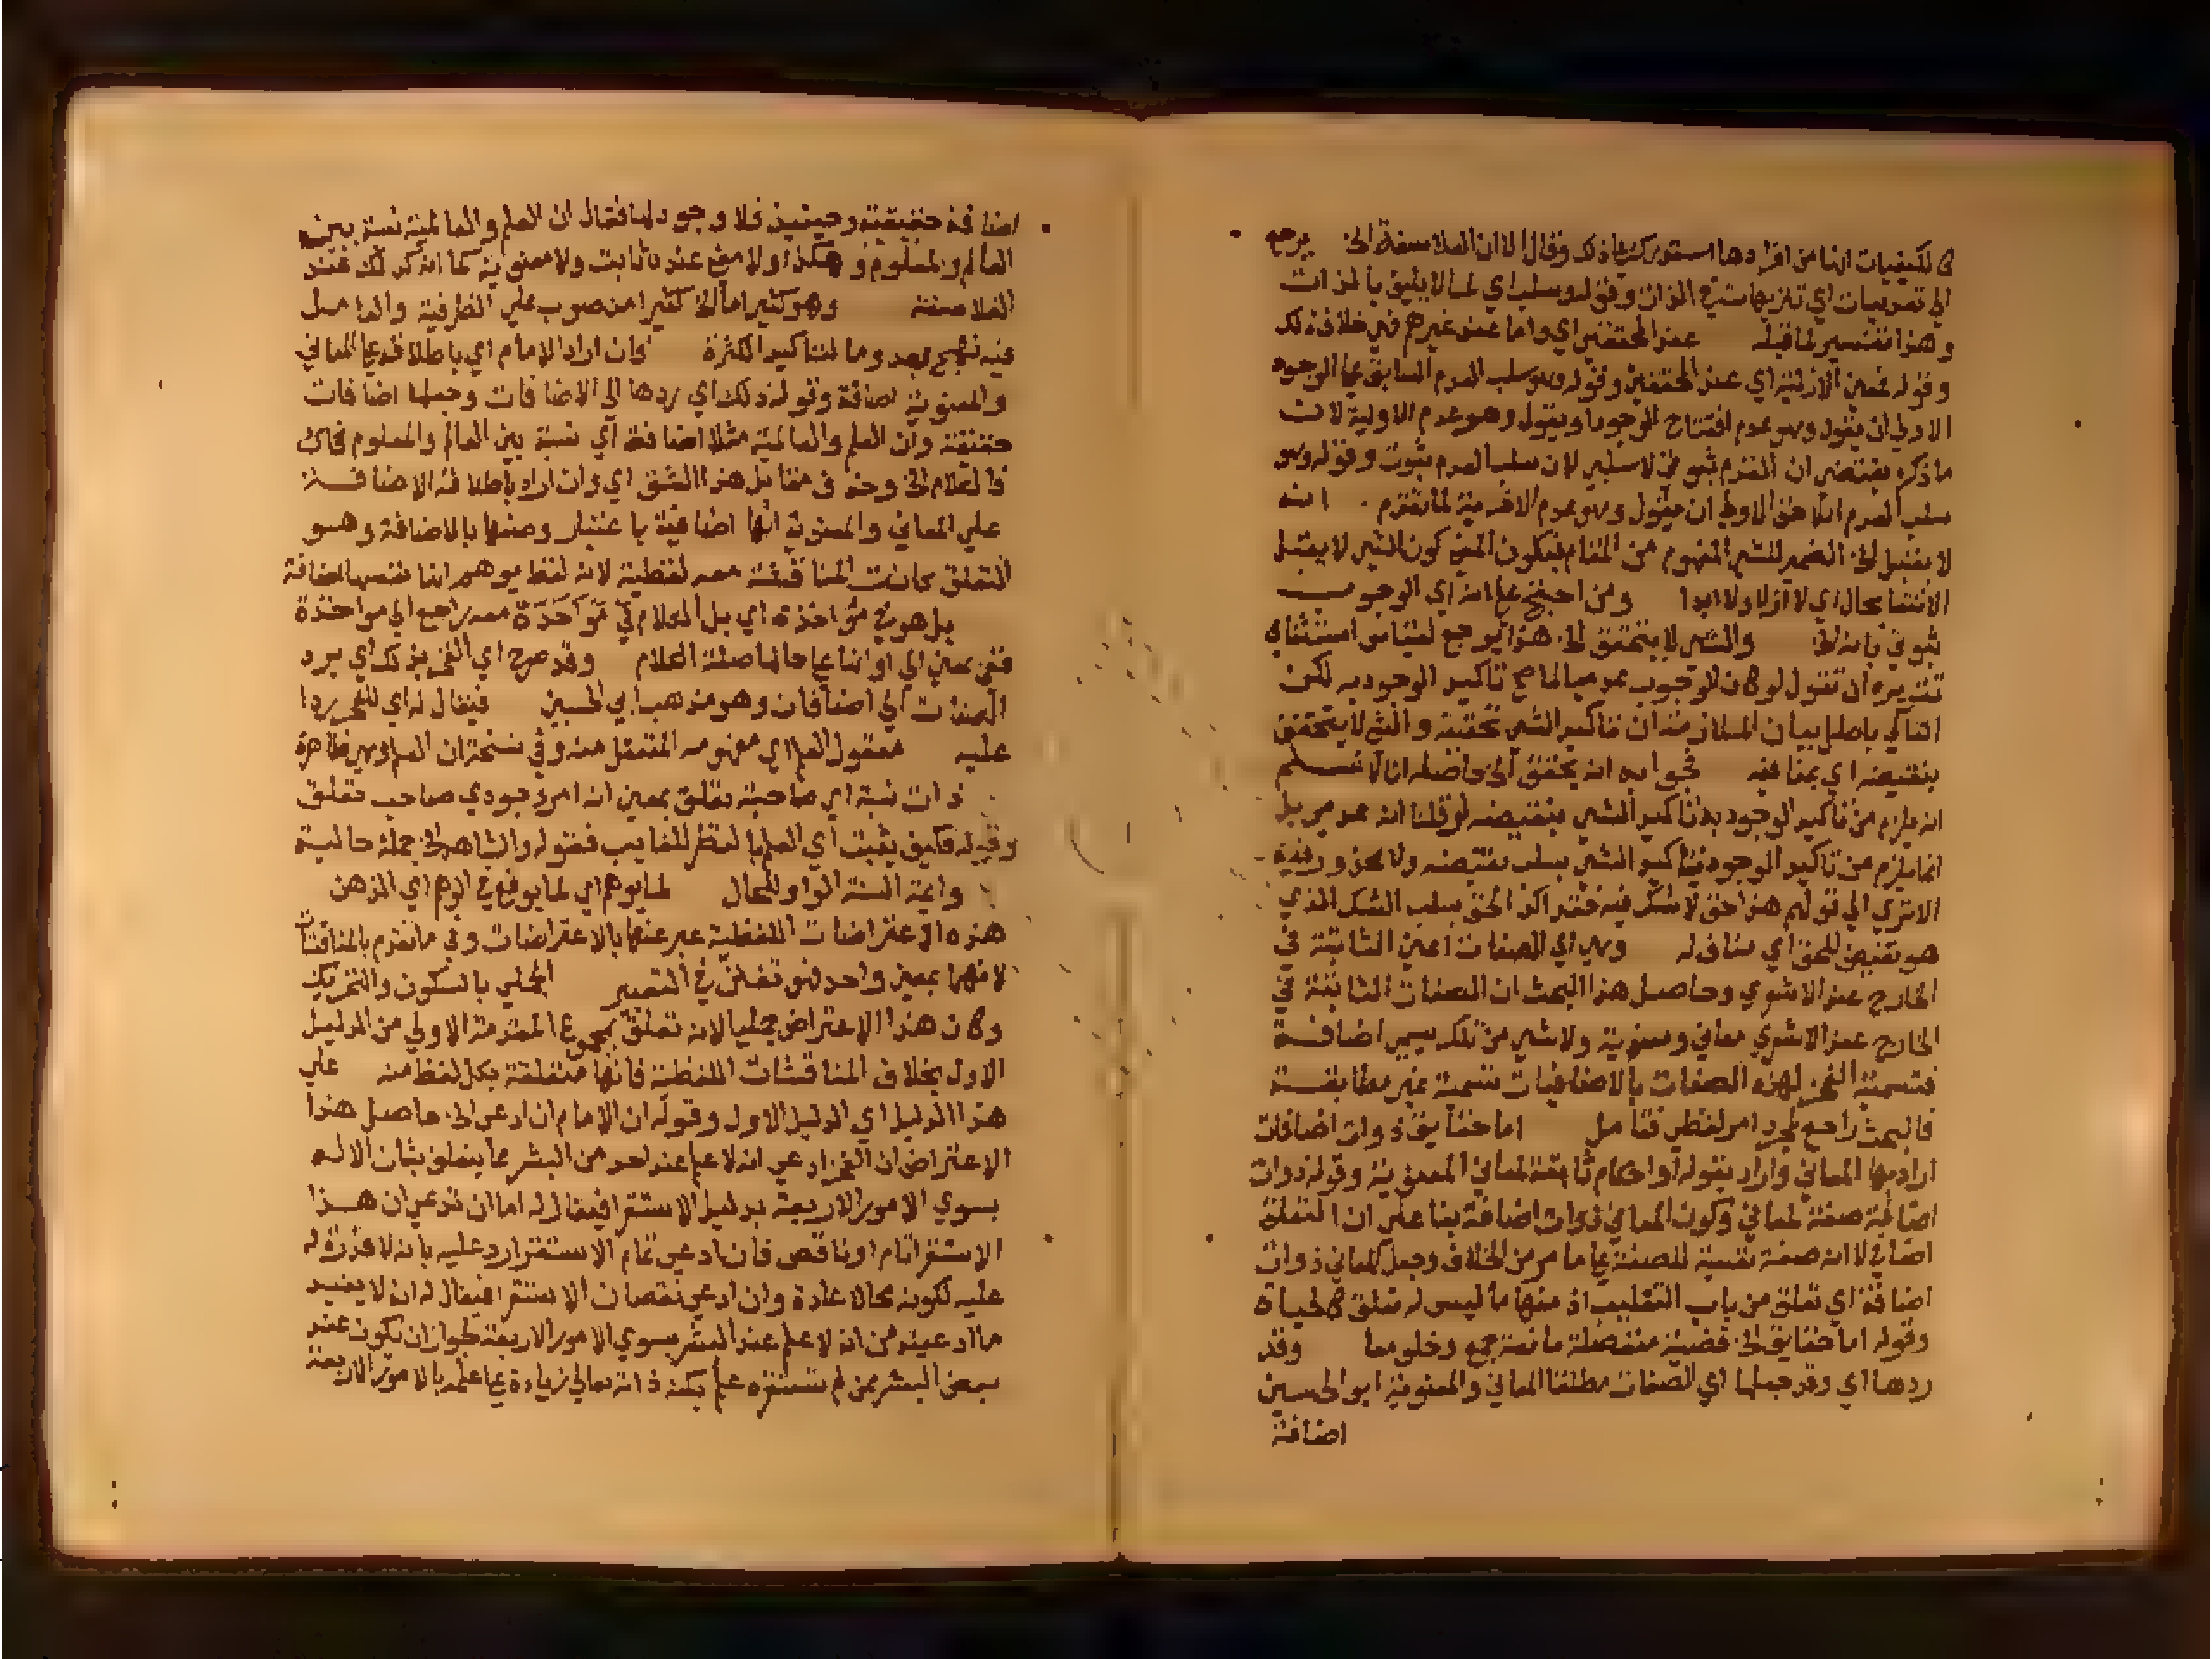 كالكيفيات انها من افرادها استدرك على ذلك وقال الا ان الفلاسفة الخ يرجع
الي تصريبات اي تنزيهات شرح الذات وقوله وسلب اي لما لا يليق بالذات
وهذا تفسير لما قبله عند المحققين اي واما عند غيرهم في خلاف ذلك
وقوله بمعني الازلية اي عند المحققين وقوله وهو سلب العدم السابق علي الوجود
الاولي ان يقول وهو عدم افتتاح الوجود او يقول وهو عدم الاولية لان
ما ذكره يقتضي ان القدم ثبوتي لا سلبي لان سلب العدم ثبوت وقوله وهو
سلب العدم اللاحق الاولي ان يقول وهو عدم الاخرية لما تقدم انه
لا يقبل الخ الضمير للشي المفهوم من المقام فيكون المعني كون الشي لا يقبل
الانتفا بحال اي لا ازلا ولا ابدا ومن احتج علي انه اي الوجوب
ثبوتي بانه الخ والشي لا يتحقق الخ هذا يرجع لقياس استثنائي
تقريره ان تقول لو كان الوجوب عدميا لما صح تاكيد الوجود به لكن
التالي باطل بيان الملازمة ان تاكيد الشي تحقيقه والشي لا يتحقق
بنقيضه اي بمنافيه فجوابه انه يحقق الخ حاصله انا لا نسلم
انه يلزم من تاكيد الوجود به تاكيد الشي بنقيضه لو قلنا انه عدمي بل
انما يلزم من تاكيد الوجود تاكيد الشي بسلب نقيضه ولا محذور فيه
الا تري الي قولهم هذا حق لا شك فيه فقد اكد الحق بسلب الشك الذي
هو نقيض للحق اي مناف له وهي اي الصفات اعني الثابتة في
الخارج عند الاشعري وحاصل هذا البحث ان الصفات الثابتة في
الخارج عند الاشعري معاني ومعنوية ولا شي من تلك يسمي اضافة
فتسمية الفخر لهذه الصفات بالاضافيات تسمية غير مطابقة
فالبحث راجع لمجرد امر لفظي فتامل اما حقايق ذوات اضافات
اراد بها المعاني واراد بقوله او احكام ثابتة لمعاني المعنوية وقوله ذوات
اضافة صفة لمعاني وكون المعاني ذوات اضافة بنا علي ان التعلق
اضافي لا انه صفة نفسية للصفة علي ما مر من الخلاف وجعل المعاني ذوات
اضافة اي تعلق من باب التغليب اذ منها ما ليس له تعلق كالحياة
وقوله اما حقايق الخ قضية منفصلة مانعة جمع وخلو معا وقد
ردها اي وقد جعلها اي الصفات مطلقا المعاني والمعنوية ابو الحسين
اضافة
اضافة حقيقية وحينيذ فلا وجود لها فقال ان العلم والعالمية نسبة بين
العالم والمعلوم وهكذا ولا معني عنده ثابت ولا معنوية كما انه كذلك عند
الفلاسفة وهو كثيرا ما الخ كثيرا منصوب علي الظرفية والعامل
فيه نهج بعد وما لتاكيد الكثرة وان اراد الامام اي باطلاقه علي المعاني
والمعنوية اضافة وقوله ذلك اي ردها الي الاضافات وجعلها اضافات
حقيقة وان العلم والعالمية مثلا اضافة اي نسبة بين العالم والمعلوم
فالكلام الخ وحذف مقابل هذا الشق اي وان اراد باطلاقه الاضافة
علي المعاني والمعنوية انها اضافية باعتبار وصفها بالاضافة وهو
التعلق كانت المناقشة معه لفظية لانه لفظ يوهم انها نفسها اضافة
بل هو في مؤاخذة اي بل الكلام في مؤاخذة معه راجع الي مؤاخذة
ففي بمعني الي او انها علي حالها صلة الكلام وقد صرح اي الفخر بذلك اي برد
الصفات الي اضافات وهو مذهب ابي الحسين فيقال له اي للفخر ردا
عليه معقول العلم اي مفهومه المتعقل منه وفي نسخة ان العلم وهي ظاهرة
ذات نسبة اي صاحبة تعلق بمعني انه امر وجودي صاحب تعلق
وقوله فكيف يثبت اي العلم بالنظر للغايب فقوله والشاهد الخ جملة حالية
وايمة السنة الواو للحال لما يوهم اي لما يوقع في الوهم اي الذهن
هذه الاعتراضات اللفظية عبر عنها بالاعتراضات وفي ما تقدم بالمناقشات
لانهما بمعني واحد فهو تفنن في التعبير الجلي بالسكون والتحريك
وكان هذا الاعتراض جمليا لانه تعلق بمجموع المقدمة الاولي من الدليل
الاول بخلاف المناقشات اللفظية فانها متعلقة بكل لفظ منه علي
هذا الدليل اي الدليل الاول وقوله ان الامام ان ادعي الخ حاصل هذا
الاعتراض ان الفخر ادعي انه لا علم عند احد من البشر مما يتعلق بشان الاله
بسوي الامور الاربعة بدليل الاستقرا فيقال له اما ان تدعي ان هذا
الاستقرا تام او ناقص فان ادعي تمام الاستقرا رد عليه بانه لا قدرة له
عليه لكونه محالا عادة وان ادعي نقصان الاستقرا فيقال له انه لا يفيد
ما ادعيته من انه لا علم عند البشر بسوي الامور الاربعة لجواز ان يكون عند
بعض البشر ممن لم تستقره علم بكنه ذاته تعالي زيادة علي علمه بالامور الاربعة